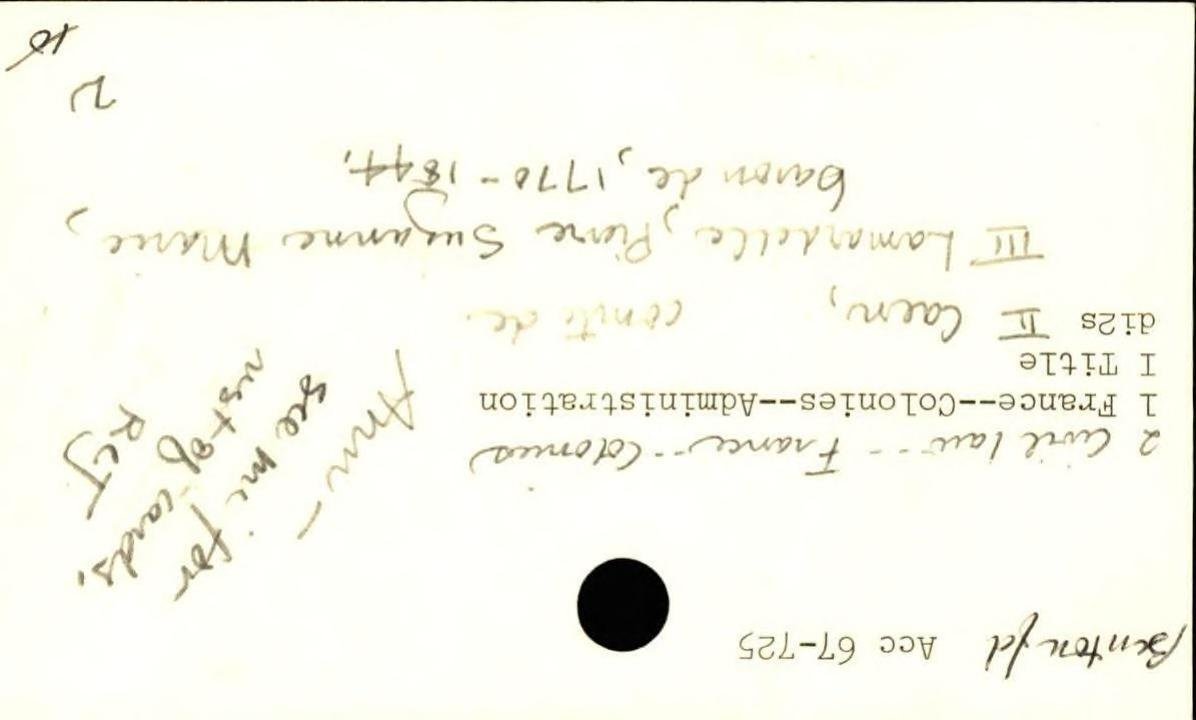 Benton fd Acc 67-725
2 Civil law -- France -- Colonies
1 France--Colonies--Administration
I Title
di2s II Caen, comte de
III Lamardelle, Pierre Suzanne Marie,
baron de, 1770-1844.
2
Ann -
see me for
rest of cards.
REJ